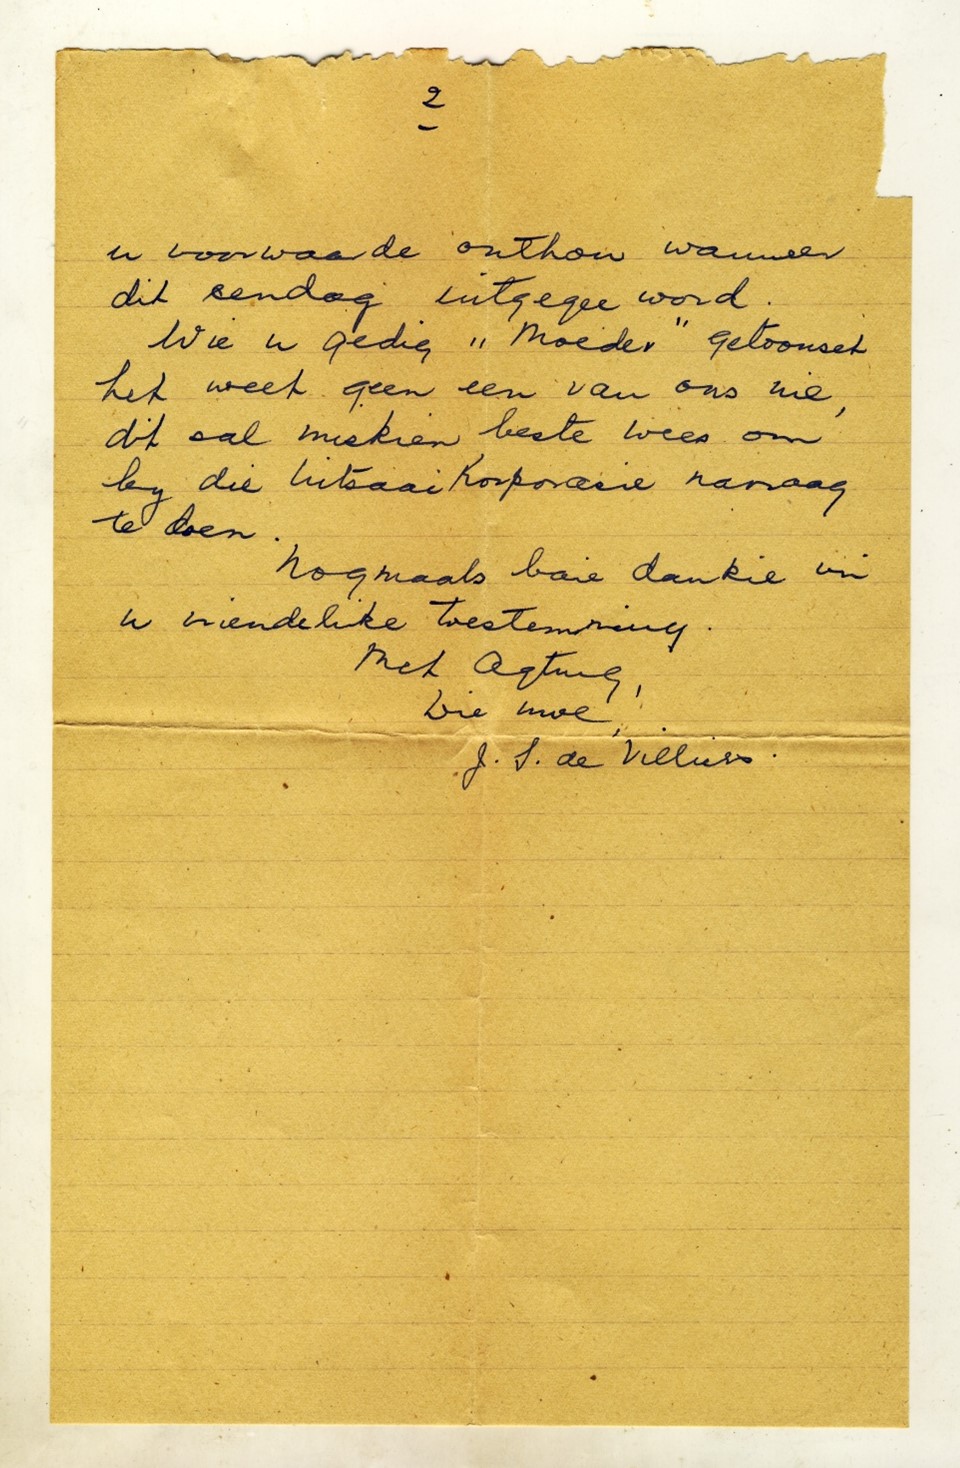 2
u voorwaarde onthou wanneer
dit eendag uitgegee word.
Wie u gedig „Moeder" getoonset
het weet geen een van ons nie,
dit sal miskien beste wees om
by die Uitsaai Korporasie navraag
te doen.
Nogmaals baie dankie vir
u vriendelike toestemming.
Met Agting,
Die uwe,
J. S. de Villiers.